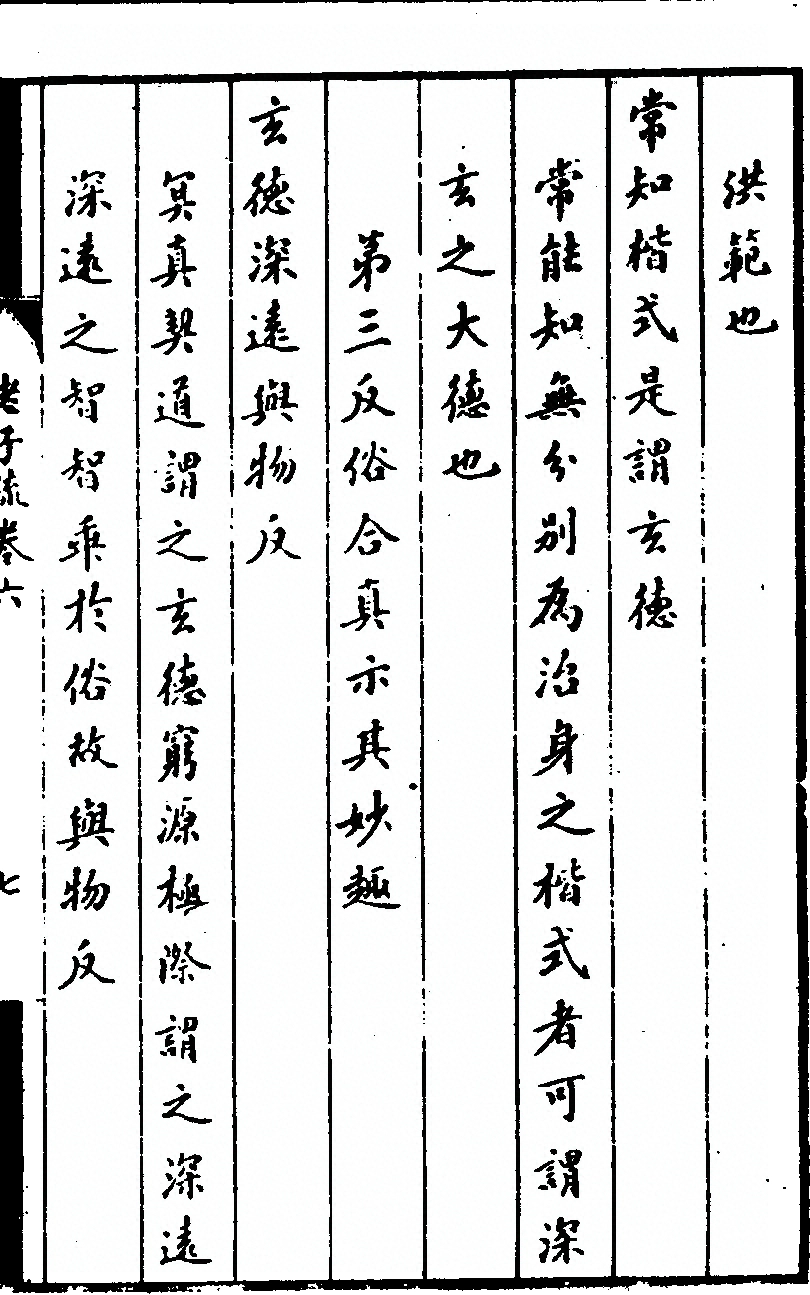 洪範也
常知楷式是謂玄德
常能知無分別為治身之楷式者可謂深
玄之大德也
第三反俗合真示其妙趣
玄德深遠與物反
冥真契道謂之玄德窮源極際謂之深遠
深遠之智智乖於俗故與物反
老子疏卷六
七